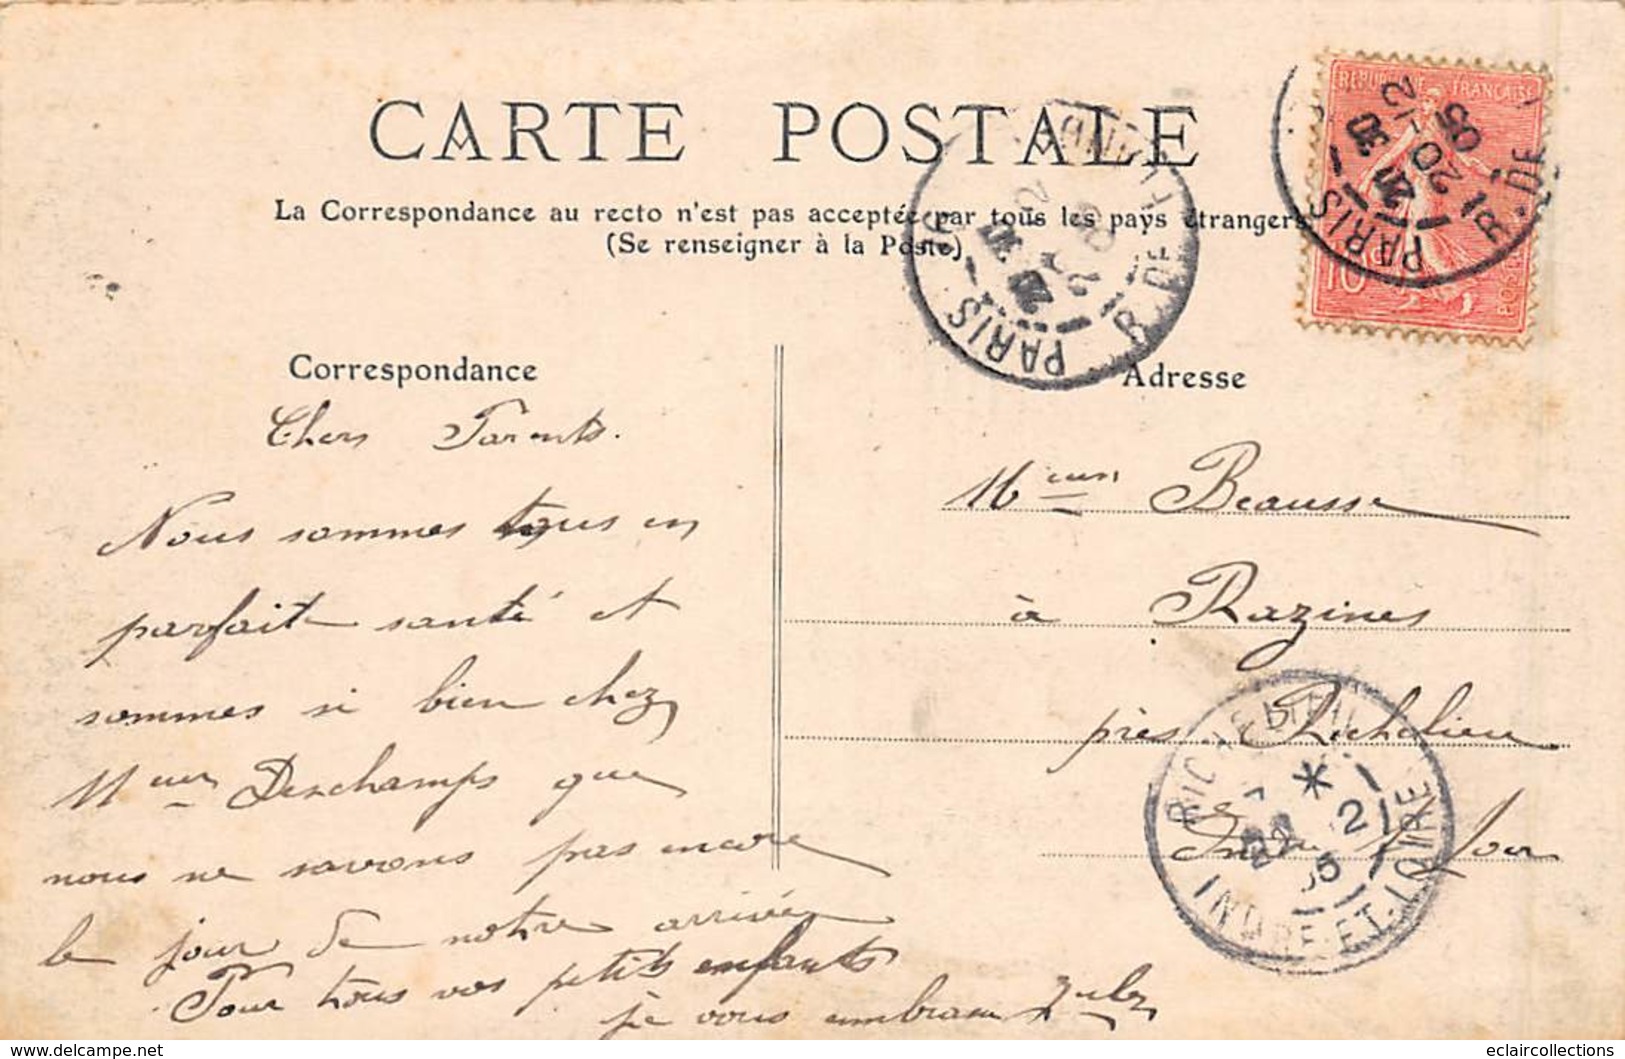 CARTE POSTALE
La Correspondance au recto n'est pas acceptée par tous les pays étrangers
(Se renseigner à la Poste)
REPUBLIQUE FRANÇAISE
10
POSTES
PARIS
R. DE
20-12
05
PARIS
R. DE
Correspondance
Chers Parents.
Nous sommes tous en
parfait santé et
sommes si bien chez
Meur Deschamps que
nous ne savons pas encore
le jour de notre arrivée
Pour tous vos petits enfants
je vous embrasse
Adresse
Beausse
à Razines
près Richelieu
Indre & Loir
RICHELIEU
22 12
05
INDRE-ET-LOIRE
eclaircollections